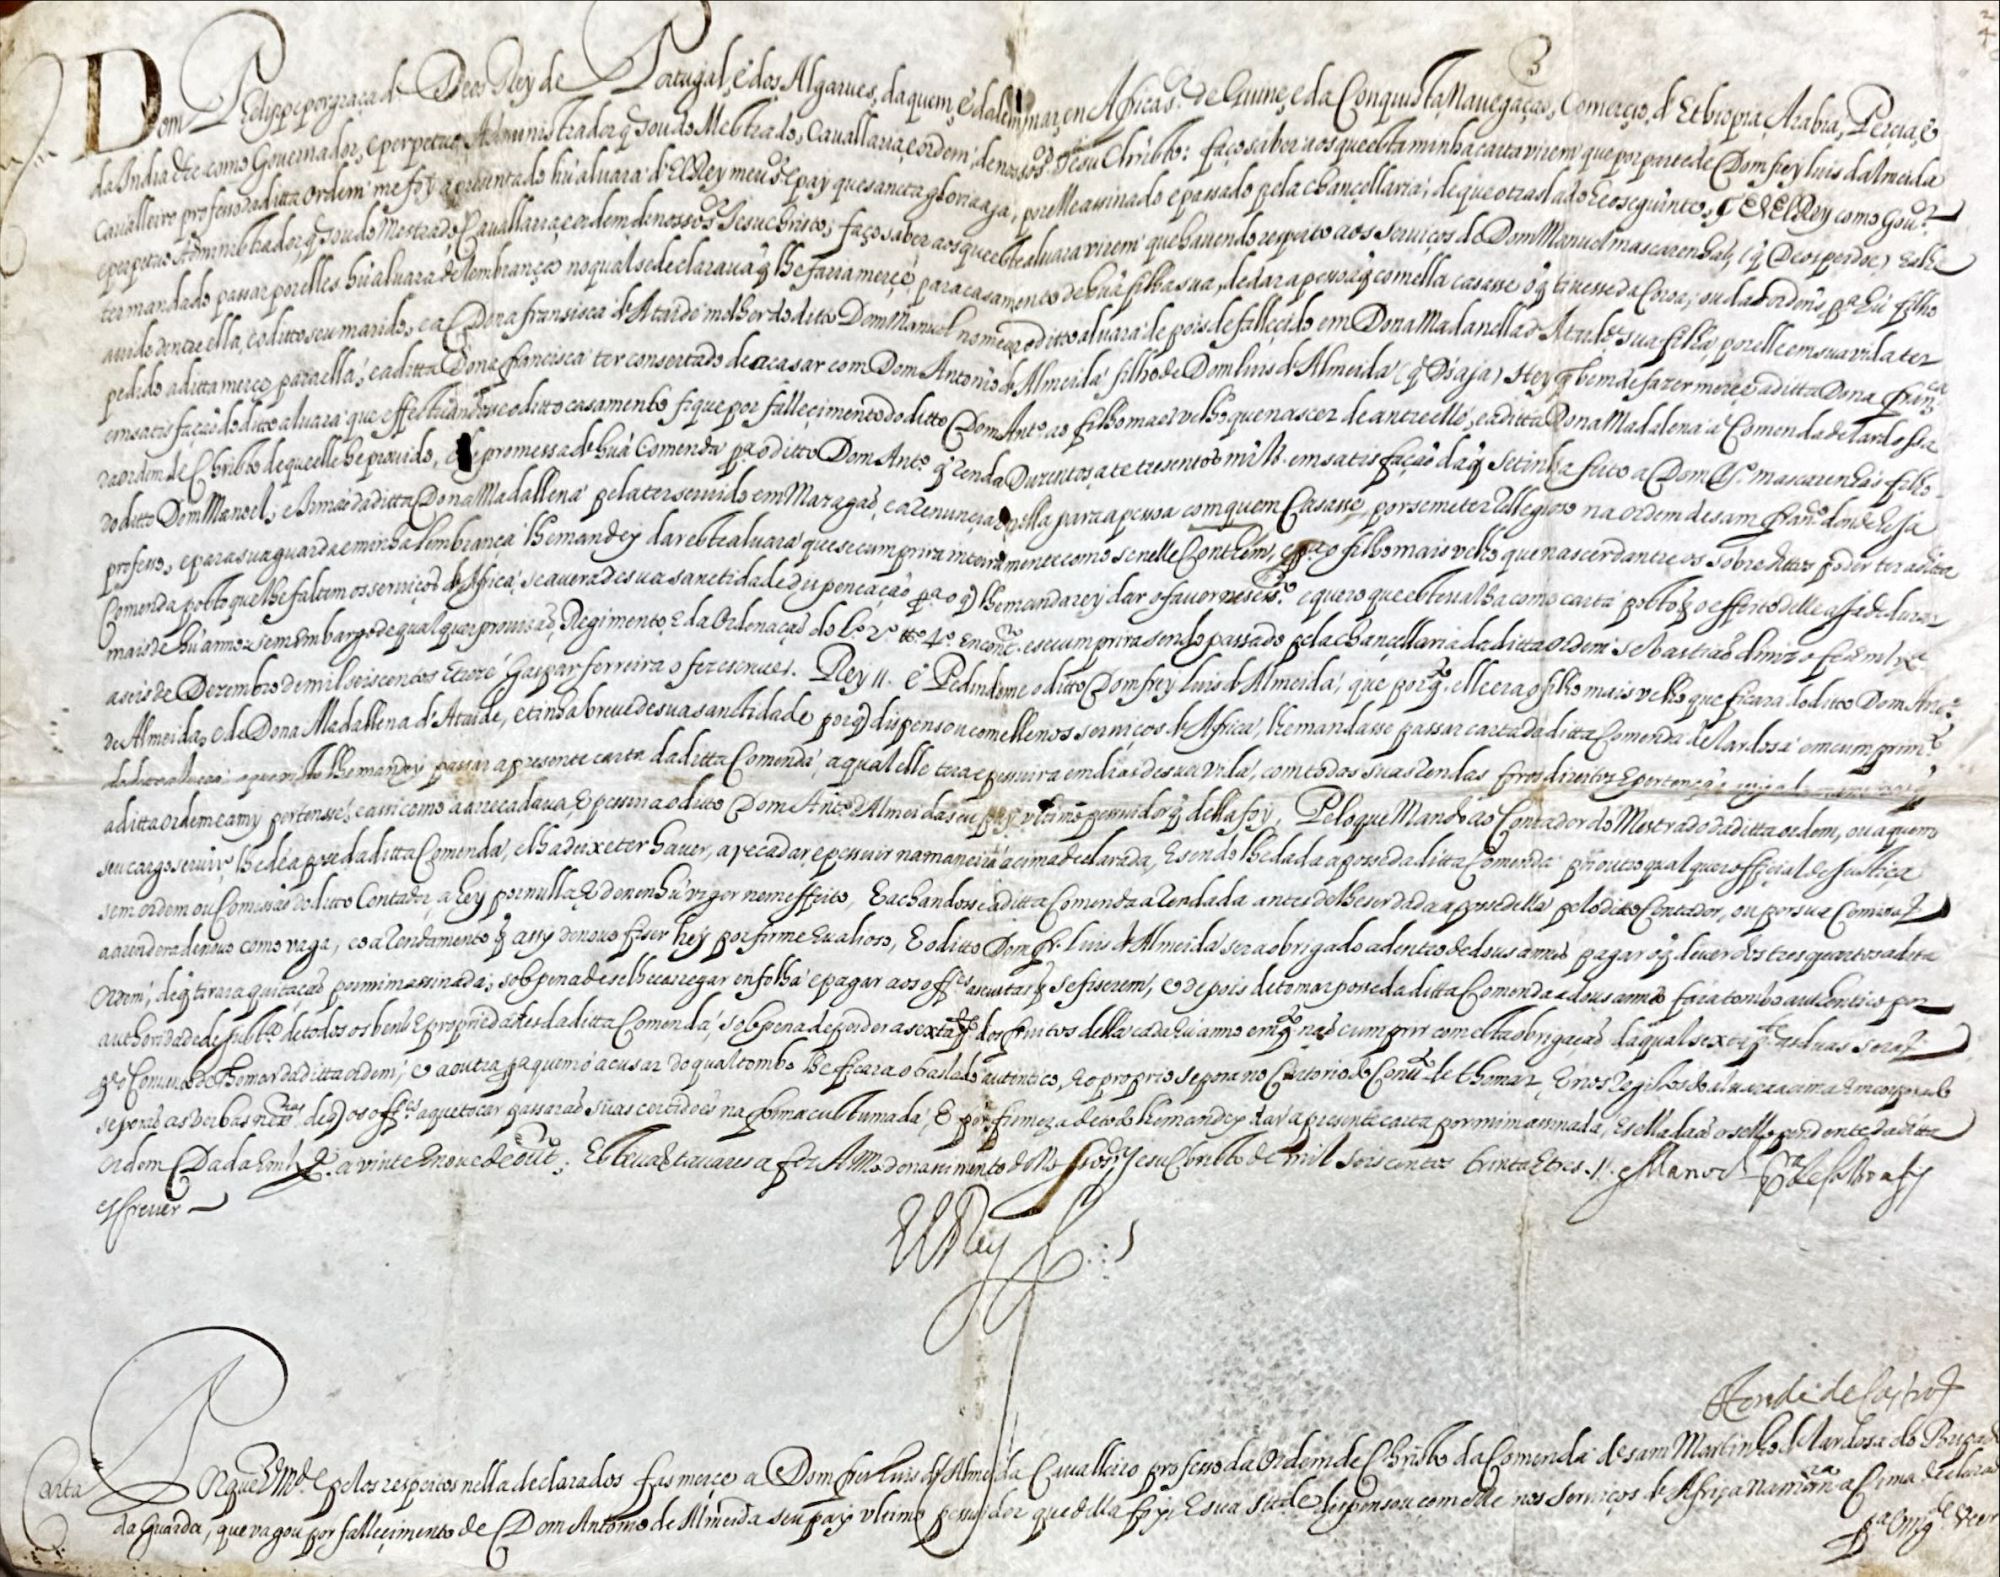 Dom Felippe por graça de Deos Rey de Portugal, e dos Algarues, daquem, e dalem mar, en Africa s.ᵒʳ de Guine, e da Conquista, Nauegação, Comercio, d' Ethiopia Arabia, Percia, e
da India etc como Gouernador, e perpetuo Administrador q̃ sou do Mestrado, Cauallaria, e ordem de nosso sᵒʳ Jesu Christo: faço saber aos que esta minha carta virem que por parte de Dom frey luis dalmeida
Caualleiro professo da ditta Ordem me foy apresentado hũ aluara d' ElRey meu sᵒʳ e pay que sancta gloria aja, por elle assinado e passado pela chançellaria, de que o traslado he o seguinte, Eu ElRey como Gouᵒʳ
e perpetuo Administrador q̃ sou do Mestrado, Cauallaria, e ordem de nosso sᵒʳ Jesu Christo; faço saber aos que este aluara virem que hauendo respeito aos seruiços de Dom Manuel mascarenhas, (q̃ Deos perdoe) e a lhe
ter mandado passar por elles hũ aluara de lembrança no qual se declaraua q̃ lhe faria merçe para casamento de hũa filha sua, de dar a pesoa q̃ com ella casasse o q̃ tiuesse da Coroa, ou das ordens pᵃ hũ filho
auido dentre ella, e o ditto seu marido, e a Dona fransisca d' Ataide molher do ditto Dom Manuel nomear o ditto aluara depois de falleçido em Dona Madanella d' Ataide sua filha, por elle em sua vida ter
pedido a ditta merçe para ella, e a ditta Dona francisca ter consertado de a casar com Dom Antonio de Almeida filho de Dom luis d' Almeida (q̃ Ds aja) Hey q̃ bem de fazer merçe a ditta Dona Fran.ᶜᵃ
em satisfação do ditto aluara que effeituandosse o ditto casamento fique por falleçimento do ditto Dom Antᵒ ao filho mais velho que nascer de antre elle, e a ditta Dona Madalena a Comenda de lardossa
da ordem de Christo de que elle he prouido, e de promessa de hũa Comenda pᵃ o ditto Dom Antᵒ q̃ renda Duzentos, ate tresentos mil rs em satisfação da q̃ se tinha feito a Dom mascarenhas filho
do ditto Dom Manoel, e Irmão da ditta Dona Madallena pela ter seruido em Mazagão, e a renunciar nella para a pessoa com quem Casasse, por se meter Rellegioso na ordem de sam Franᶜᵒ donde he ja
professo, e para sua guarda e minha lembrança lhe mandey dar este aluara que se cumprira inteiramente como se nelle Contem, e pᵃ o filho mais velho que nascer dantre os sobredittos poder ter a ditta
Comenda posto que lhe faltem os seruiços de Africa, se auera de sua sanctidade dispençação pᵃ o q̃ lhe mandarey dar o fauor nesesᵒ. e quero que este valha como carta posto q̃ o effeito delle aja de durar
mais de hũ anno, sem embargo de qualquer prouisão, Regimento, e da Ordenação do lᵒ 2ᵒ ttᵒ 4ᵒ em contrᵒ e se cumprira sendo passado pela chançellaria da ditta ordem sebastião dinis o fes em lxᵃ
a seis de Dezembro de mil seiscentos e treze Gaspar ferreira o fez escreuer. Rey ǁ. E Pedindome o ditto Dom frey luis d' Almeida, que por q̃ elle era o filho mais velho que ficara do ditto Dom Antᵒ
de Almeida, e de Dona Madallena d' Ataide, e tinha breue de sua sanctidade por q̃ dispensou com elle nos seruiços de Africa, lhe mandasse passar carta da ditta Comenda de lardossa em cumprimᵗᵒ
do ditto aluara lhe mandey passar a presente carta da ditta Comenda, a qual elle tera e pessuira em dias de sua vida, com todas suas rendas foros direitos e pertenças
a ditta ordem e a my pertensse, e assi como a arrecadaua, e pessuia o ditto Dom Antᵒ d' Almeida seu pay vltimo pessuidor q̃ della foy, Pelo que Mando ao Contador do Mestrado da ditta ordem, ou a quem
seu cargo seruir, lhe dê a posse da ditta Comenda, e lha deixe ter hauer, arrecadar, e pessuir na maneira açima declarada, e sendolhe dada a posse da ditta Comenda por outro qualquer offiçial de Justiça
sem ordem ou Comissão do ditto Contador, a hey por nulla, e de nenhũ vigor nem effeito, E achandosse a ditta Comenda arendada antes de lhe ser dada a posse della pelo ditto Contador, ou por sua Comissão
a arendera de nouo como vaga, e o arendamento q̃ assy de nouo fiser hey por firme e valioso, E o ditto Dom fr. luis d' Almeida sera obrigado a dentro de dous annos pagar o q̃ deuer dos tres quartos a dita
Ordem, de q̃ tirara quitação por mim assinada, sob pena de se lhe carregar en folha e pagar aos offᵉˢ as custas q̃ se fiserem, e depois de tomar posse da ditta Comenda a dous annos fara tombo autentico por
authoridade de Justᵃ de todos os bens e propriedades da ditta Comenda, sob pena de perder a sexta pᵗᵉ dos fruitos della cada hũ anno em q̃ não cumprir com esta obrigação da qual sexta pᵗᵉ as duas serão
pᵃ o Conuento de Thomar da ditta ordem, e a outra pᵃ quem o acusar do qual tombo lhe ficara o traslado autentico, e o proprio se pora no Cartorio do Conuᵗᵒ de thomar, E nos registos do aluara açima e incorporado
se porão as verbas nesᵃˢ de q̃ os offᵉˢ a que tocar passarão suas certidões na forma custumada, E por firmeza de todo lhe mandey dar a presente carta por mim assinada, e sellada do sello pendente da ditta
ordem Dada em lxᵃ a vinte e noue de outᵒ; Esteuão tauares a fez Anno do nascimento de N. Sᵒʳ Jesu Christo de mil seiscentos trinta e tres. Manoel Pᵃ de Castro a fiz
escreuer
ElRey
Conde de Castro
Carta
Por que V. Mdᵉ. e pelos respeitos nella declarados fas merçe a Dom frei luis de Almeida Caualleiro professo da Ordem de Christo da Comenda de sam Martinho de lardosa do Bispado
da Guarda, que vagou por falleçimento de Dom Antonio de Almeida seu pay vltimo pessuidor que della foy, e sua Sᵗᵈᵉ. despensou com elle nos seruiços de Africa na manrᵃ a Cima declarada
pᵃ V. Mgᵈᵉ ver